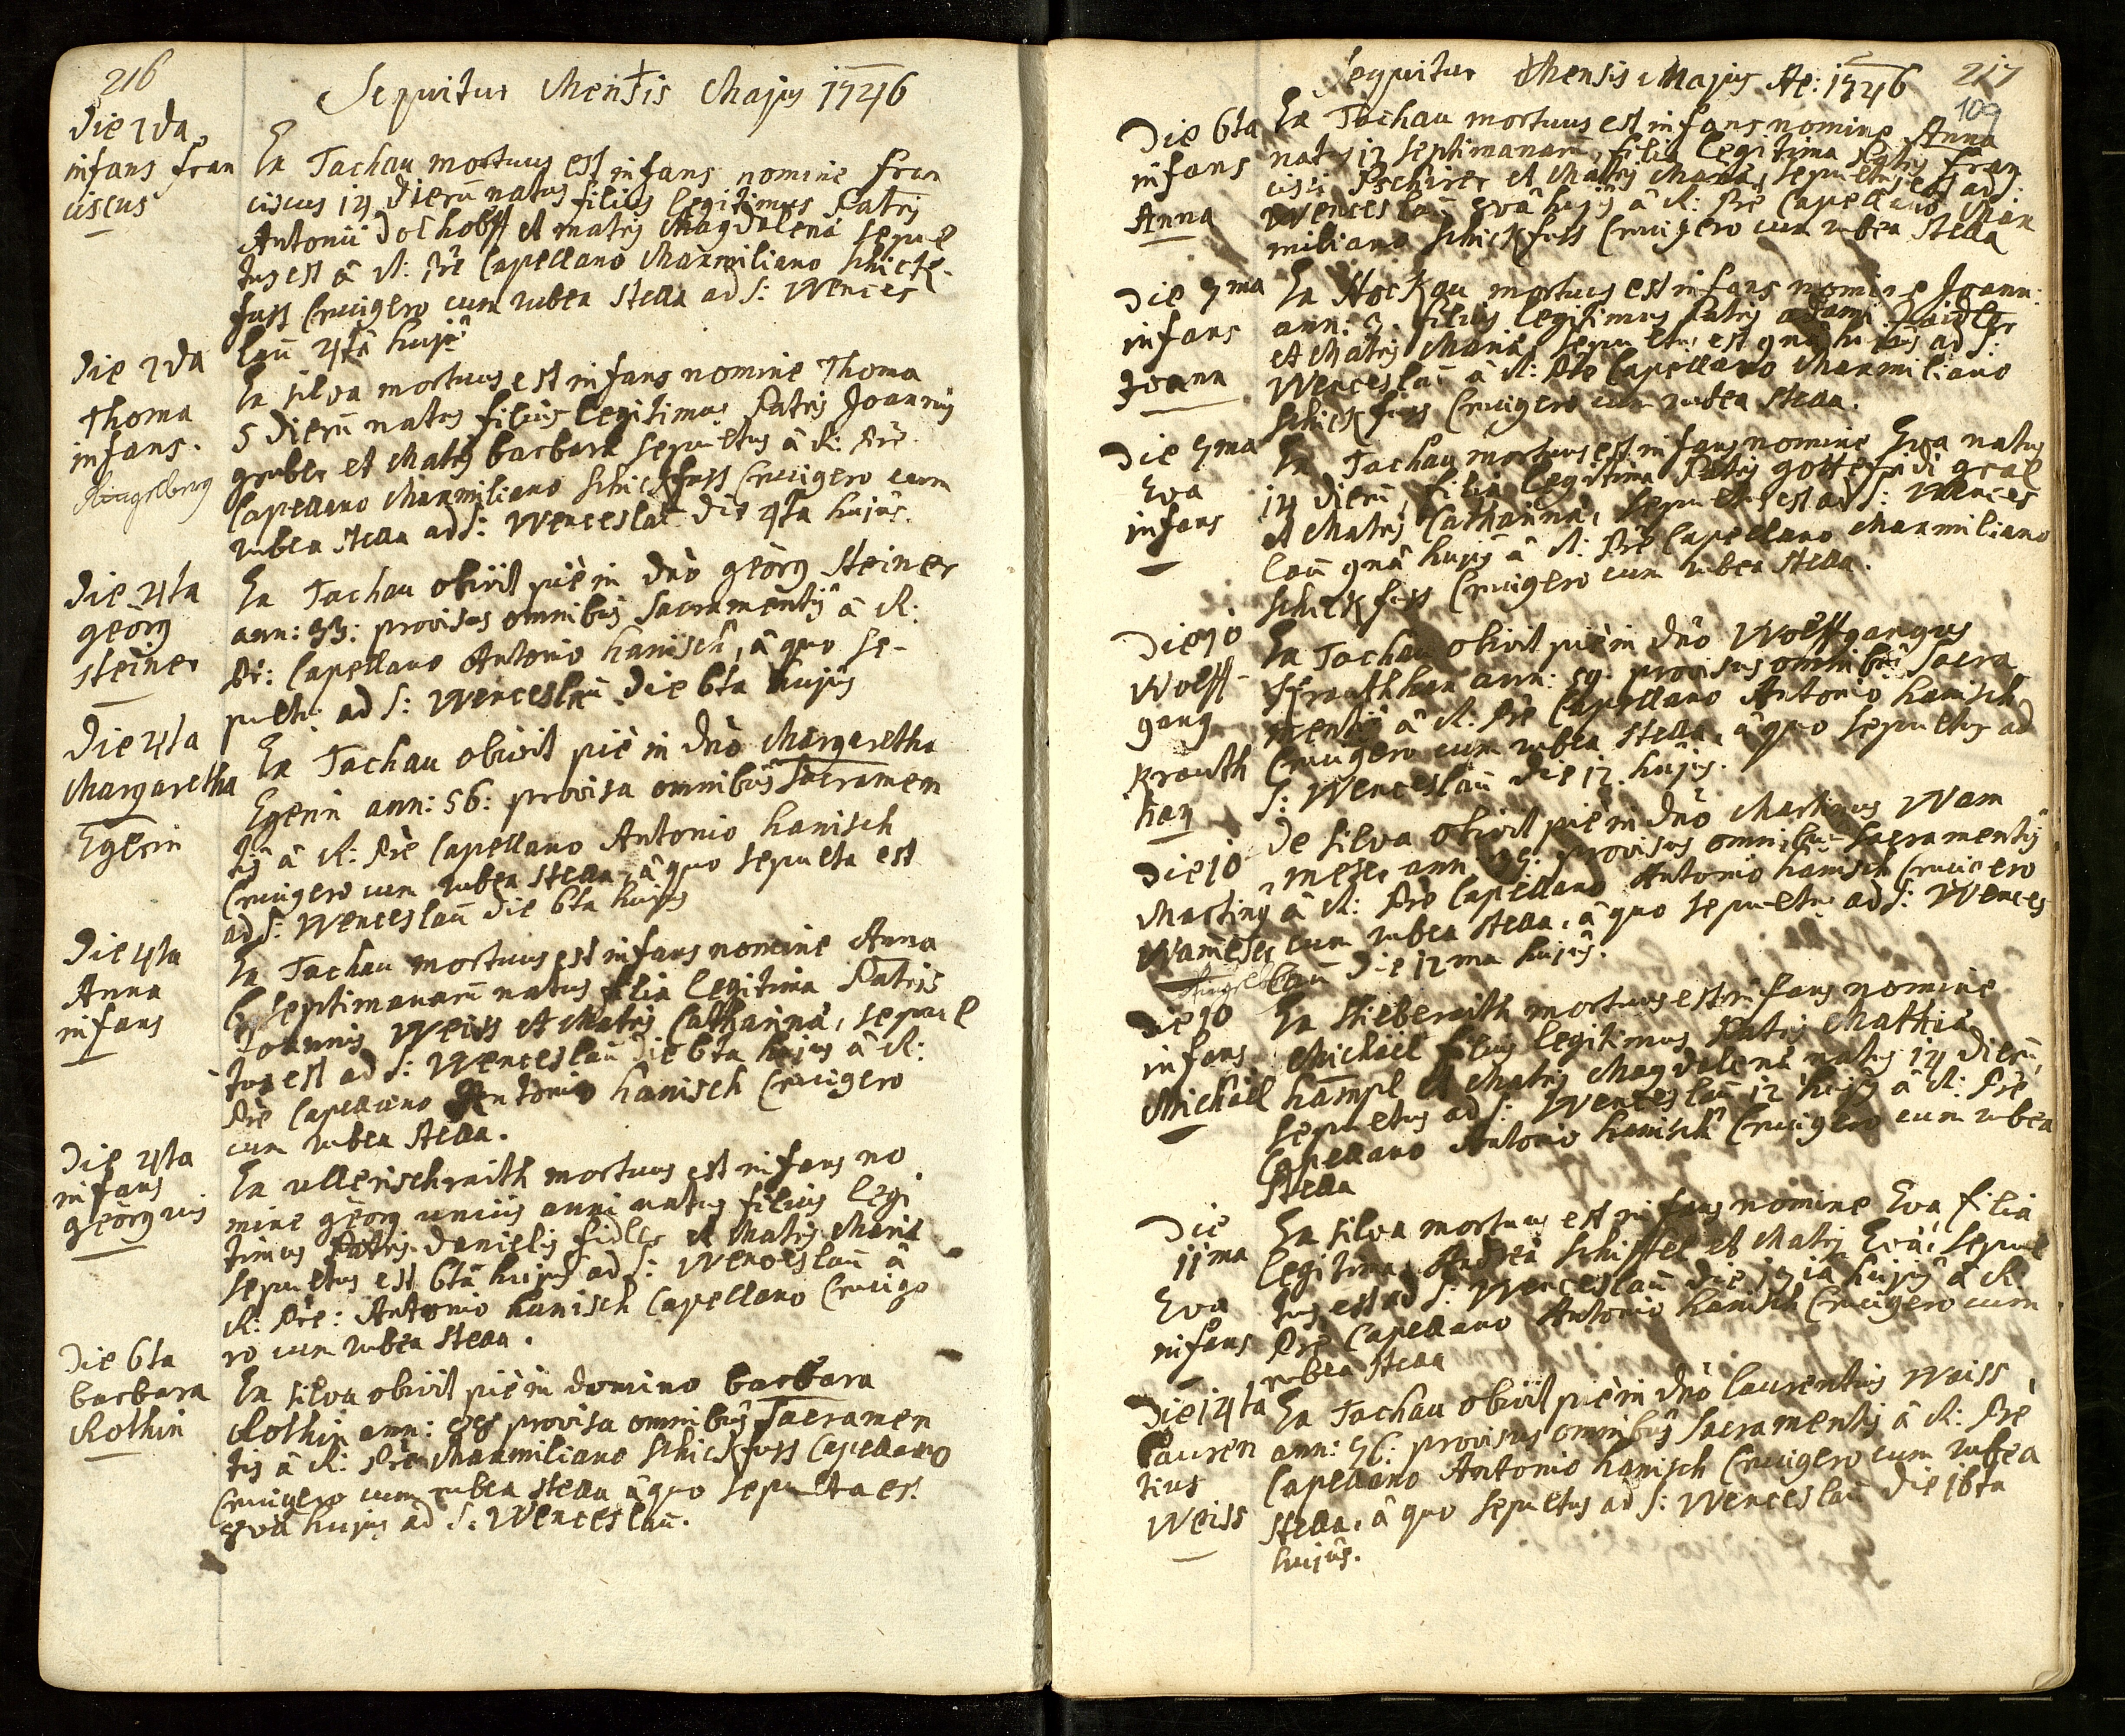 216
Sequitur Mensis Majus 1746
Die 2da
infans Fran
ciscus
Ex Tachau mortuus est infans nomine Fran
ciscus 14 dierū natus filius legitimus Patris
Antonii Dochobff et matris Magdalena sepul
tus est â R: Pre Capellano Maxmiliano Schick-
fuss Crucigero cum rubea stella ad S: Wences
laū 4tâ hujs
Die 2da
Thoma
infans.
Ringelberg
Ex silva mortuus est infans nomine Thoma
5 dierū natus filius legitimus Patris Joannis
gruber et Matris barbara sepultus â R: Pre
Capellano Maxmiliano Schickfuss Crucigero cum
rubea stella ad S: Wenceslaū die 4ta hujûs.
Die 4ta
georg
steiner
Ex Tachau obiit piè in dno georg Steiner
ann: 33: provisus omnibûs Sacramentis â R:
Pr: Capellano Antonio hanisch, â quo se-
pults ad S: Wenceslaū die 6ta hujus
Die 4ta
Margaretha
Egerin
Ex Tachau obiit piè in dno Margaretha
Egerin ann: 56: provisa omnibûs Sacramen
tis â R: Pre Capellano Antonio hanisch
Crucigero cum rubea stella, â quo sepulta est
ad S: Wenceslaū die 6ta hujus
Die 4ta
Anna
infans
Ex Tachau mortuus est infans nomine Anna
6 septimanarū natus filia legitima Patris
Joannis Weiss et Matris Catharina, sepul
tus est ad S: Wenceslaū die 6ta hujus â R:
Pre Capellano Antonio hanisch Crucigero
cum rubea stella.
Die 4ta
infans
georgius
Ex ullerischreith mortuus est infans no
mine georg uniûs anni natus filius legi
timus Patris Danielis fidler et Matris Maria
sepultus est 6tâ hujus ad S: Wenceslaū â
R: Pre: Antonio hanisch Capellano Crucige
ro cum rubea stella.
Die 6ta
barbara
Rothin
Ex silva obiit piè in domino barbara
Rothin ann: provisa omnibûs Sacramen
tis â R: Pre Maxmiliano Schickfuss Capellano
Crucigero cum rubea stella â quo sepulta es.
8va hujus ad S: Wenceslaū.
Sequitur Mensis Majus Ae: 1746
217
109
Die 6ta
infans
Anna
Ex Tachau mortuus est infans nomine Anna
natus 12 septimanarū, filia legitima Patris Fran
cisci Pschirer et Matris Maria, sepultus est ad S:
Wenceslaū 8vâ hujûs â R: Pre Capellano Max
miliano Schickfuss Crucigero cum rubea stella
Die 7ma
infans
Joann
Ex Stockau mortuus est infans nomine Joann:
ann: 3. filius legitimus Patris adami
et Matris Maria, sepultus est 9nâ hujus ad S:
Wenceslaū â R: Pre Capellano Maxmiliano
Schickfuss Crucigero cum rubea stella.
Die 7ma
Eva
infans
Ex Tachau mortuus est infans nomine Eva natus
14 dierū, filia legitima Patris gottefridi gral
et Matris Catharina, sepultus est ad S: Wences
laū 9nâ hujûs â R: Pre Capellano Maxmiliano
Schickfuss Crucigero cum rubea stella.
Die 10
Wolff-
gang
Krauth
han
Ex Tachau obiit piè in dno Wolffgangus
Krauthhan ann: 59. provisus omnibûs Sacra
mentis â R. Pre Capellano Antonio hanisch
Crucigero cum rubea stella, â quo sepultus ad
S: Wenceslaū die 12 hujus.
Die 10
Martinus
Wameser
De silva obiit piè in dno Martinus Wam
meser ann: provisus omnibus Sacramentis
â R: Pre Capellano Antonio hanisch Crucigero
cum rubea stella, â quo sepultus ad S: Wences
laū die 12ma hujûs.
Die 10
infans
Michael
Ex Stiebenrith mortuus est infans nomine
Michael filius legitimus Patris Mathia
hampl et Matris Magdalena natus 14 dierū,
sepultus ad S: Wenceslaū 12 hujus â R: Pre
Capellano Antonio hanisch Crucigero cum rubea
stella
Die
11ma
Eva
infans
Ex silva mortuus est infans nomine Eva filia
legitima, Andrea Schiffel et Matris Eva, sepul
tus est ad S: Wenceslaū die hujus â R:
Pre Capellano Antonio hanisch Crucigero cum
rubea stella
Die 14ta
lauren
tius
Weiss
Ex Tachau obiit piè in dno laurentius Weiss
ann: 56: provisus omnibûs Sacramentis â R: Pre
Capellano Antonio hanisch Crucigero cum rubea
stella, â quo sepultus ad S: Wenceslaū die 16ta
hujûs.